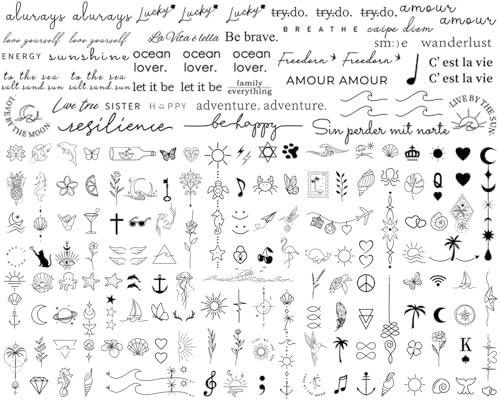 always always Lucky Lucky Lucky try.do. try.do. try.do. amour amour
love yourself love yourself La Vita è bella Be brave. BREATHE carpe diem
smile wanderlust
ENERGY sunshine ocean lover. ocean lover. ocean lover. Freedom Freedom C' est la vie
C' est la vie
to the sea to the sea
salt sand sun salt sand sun let it be let it be family everything AMOUR AMOUR
LOVE BY THE MOON Live tree SISTER HAPPY adventure. adventure. LIVE BY THE SUN
resilience be happy Sin perder mit norte
Q
K